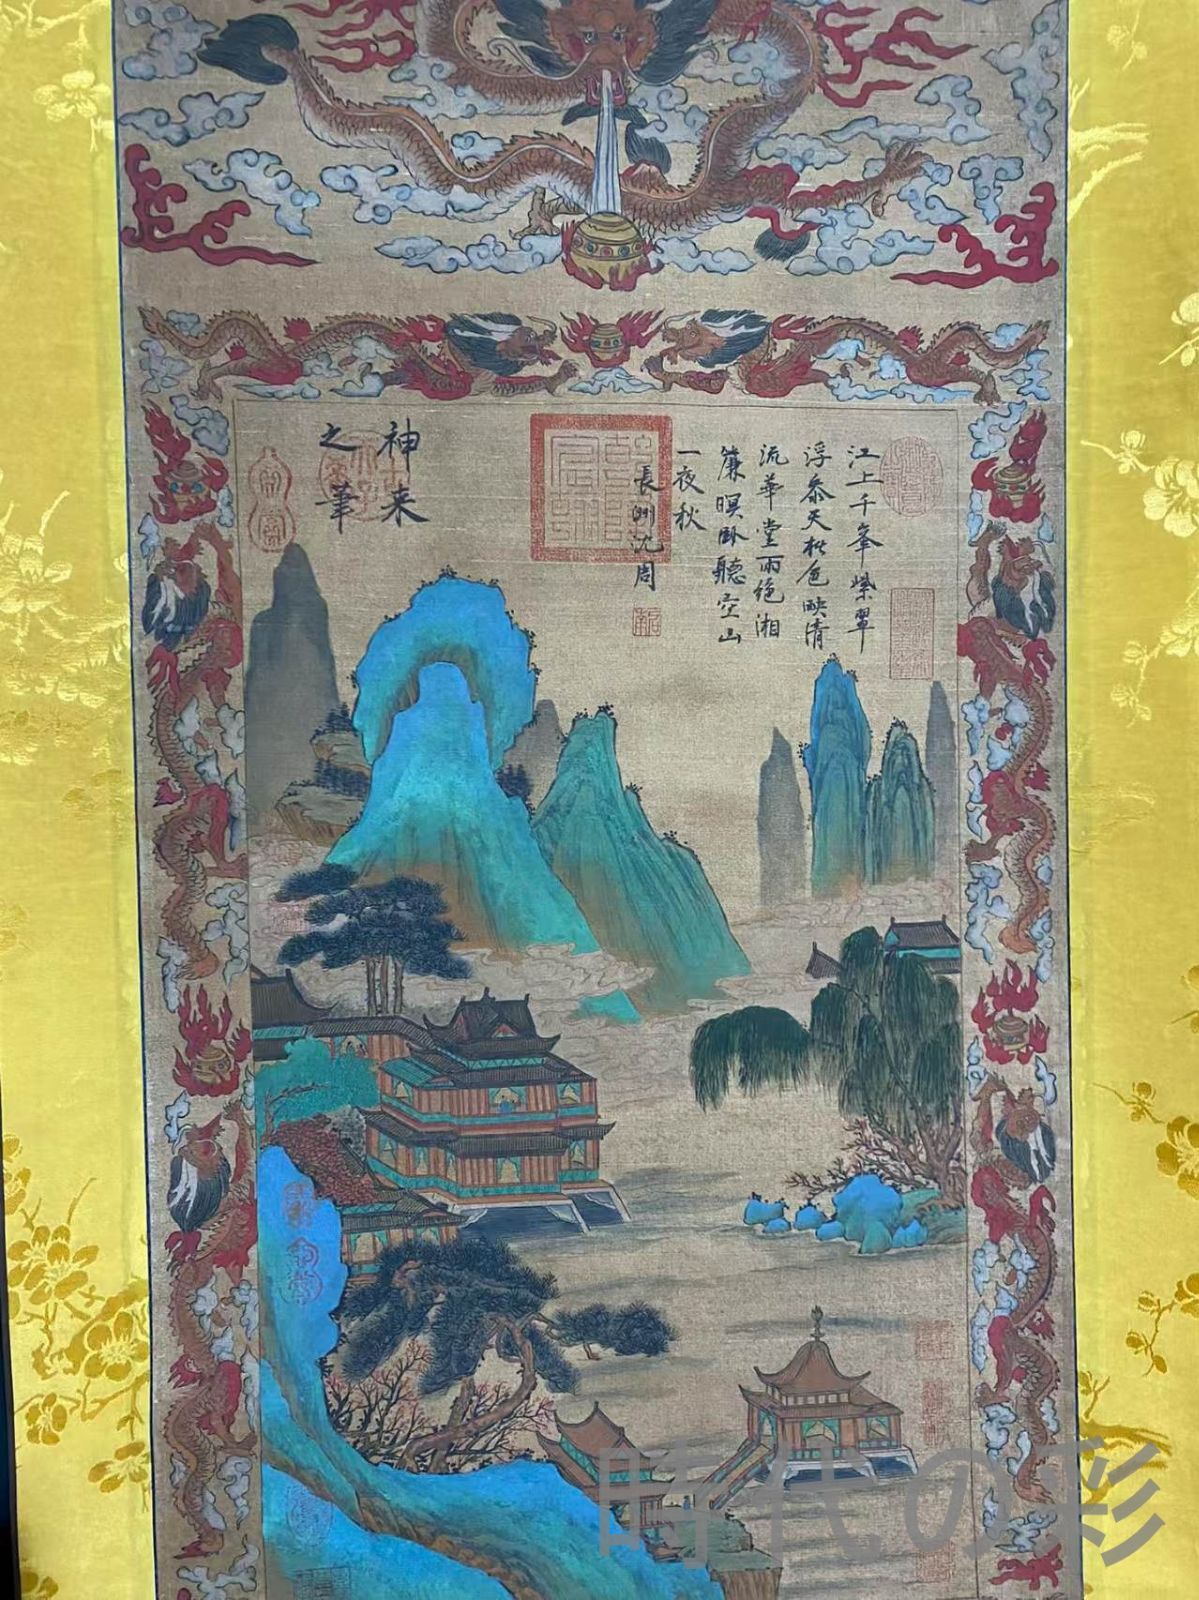 江上千峯紫翠
浮參天樹色映清
流華堂雨絕湘
簾暝臥聽空山
一夜秋
長洲沈周
神来
之筆
時代の彩